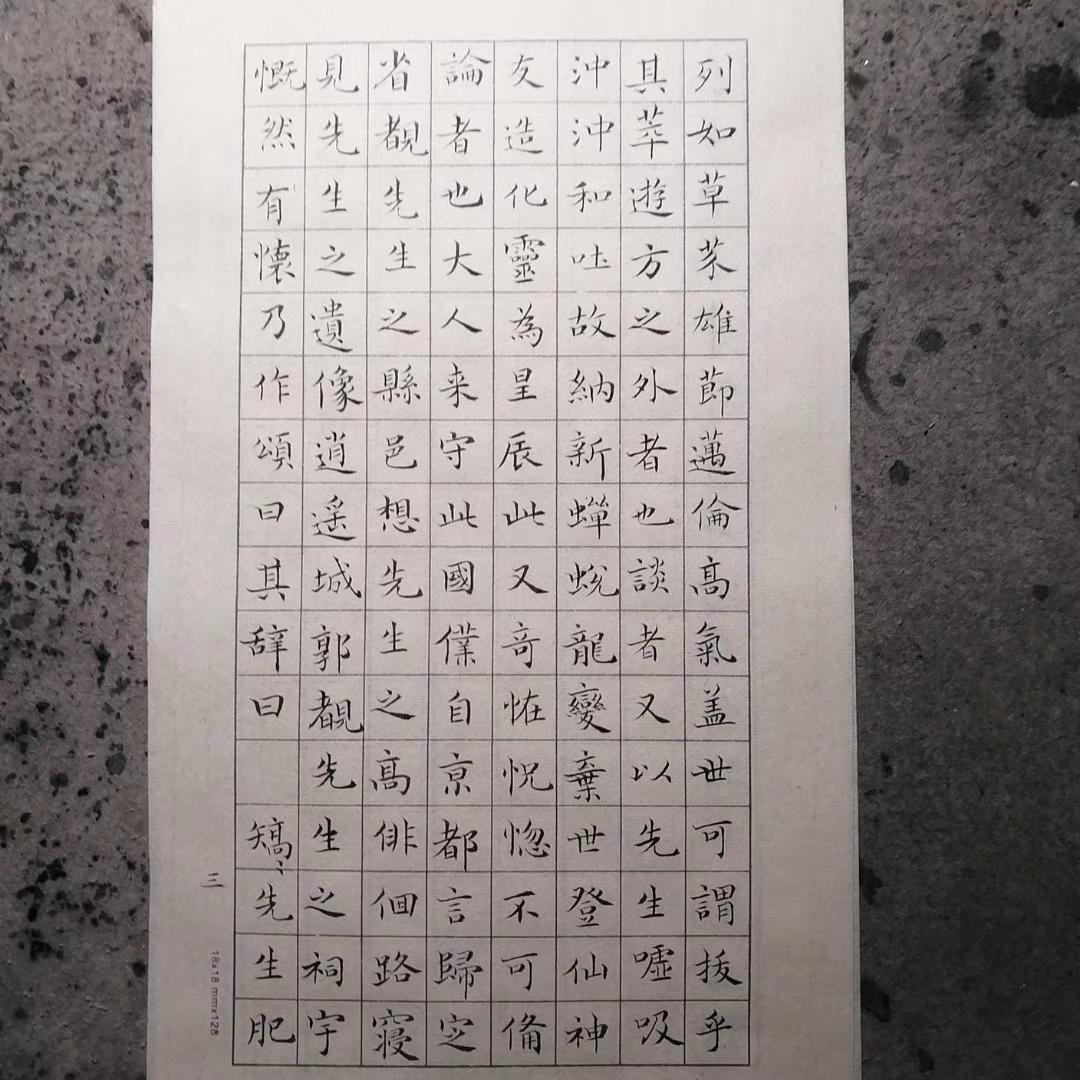 列如草芥雄節邁倫髙氣盖世可謂拔乎
其萃遊方之外者也談者又以先生噓吸
沖沖和吐故納新蟬蛻龍變棄世登仙神
友造化靈為皇辰此又竒恠怳惚不可備
論者也大人来守此國僕自亰都言歸定
省覩先生之縣邑想先生之髙俳佪路寢
見先生之遺像逍遥城郭覩先生之祠宇
慨然有懷乃作頌曰其辞曰 矯〻先生肥
三
18x18 mmx128